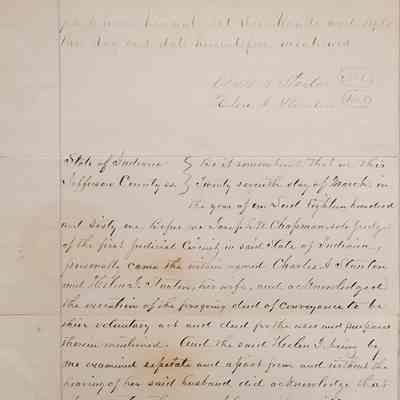 hereunto set their hands and
the day and date
State of Indiana } Be it remembered That on this
Jefferson County ss. } Twenty seventh day of March in
the year of our Lord Eighteen hundred
and sixty one, Before me Joseph W Chapman, sole judge
of the first judicial Circuit in said State of Indiana,
personally came the within named Charles A
and Helen I., his wife, and acknowledged
the execution of the foregoing deed of conveyance to be
their voluntary act and deed for the uses and purposes
therein mentioned. And the said Helen I. being by
me examined separate and apart from and without the
hearing of her said husband did acknowledge that